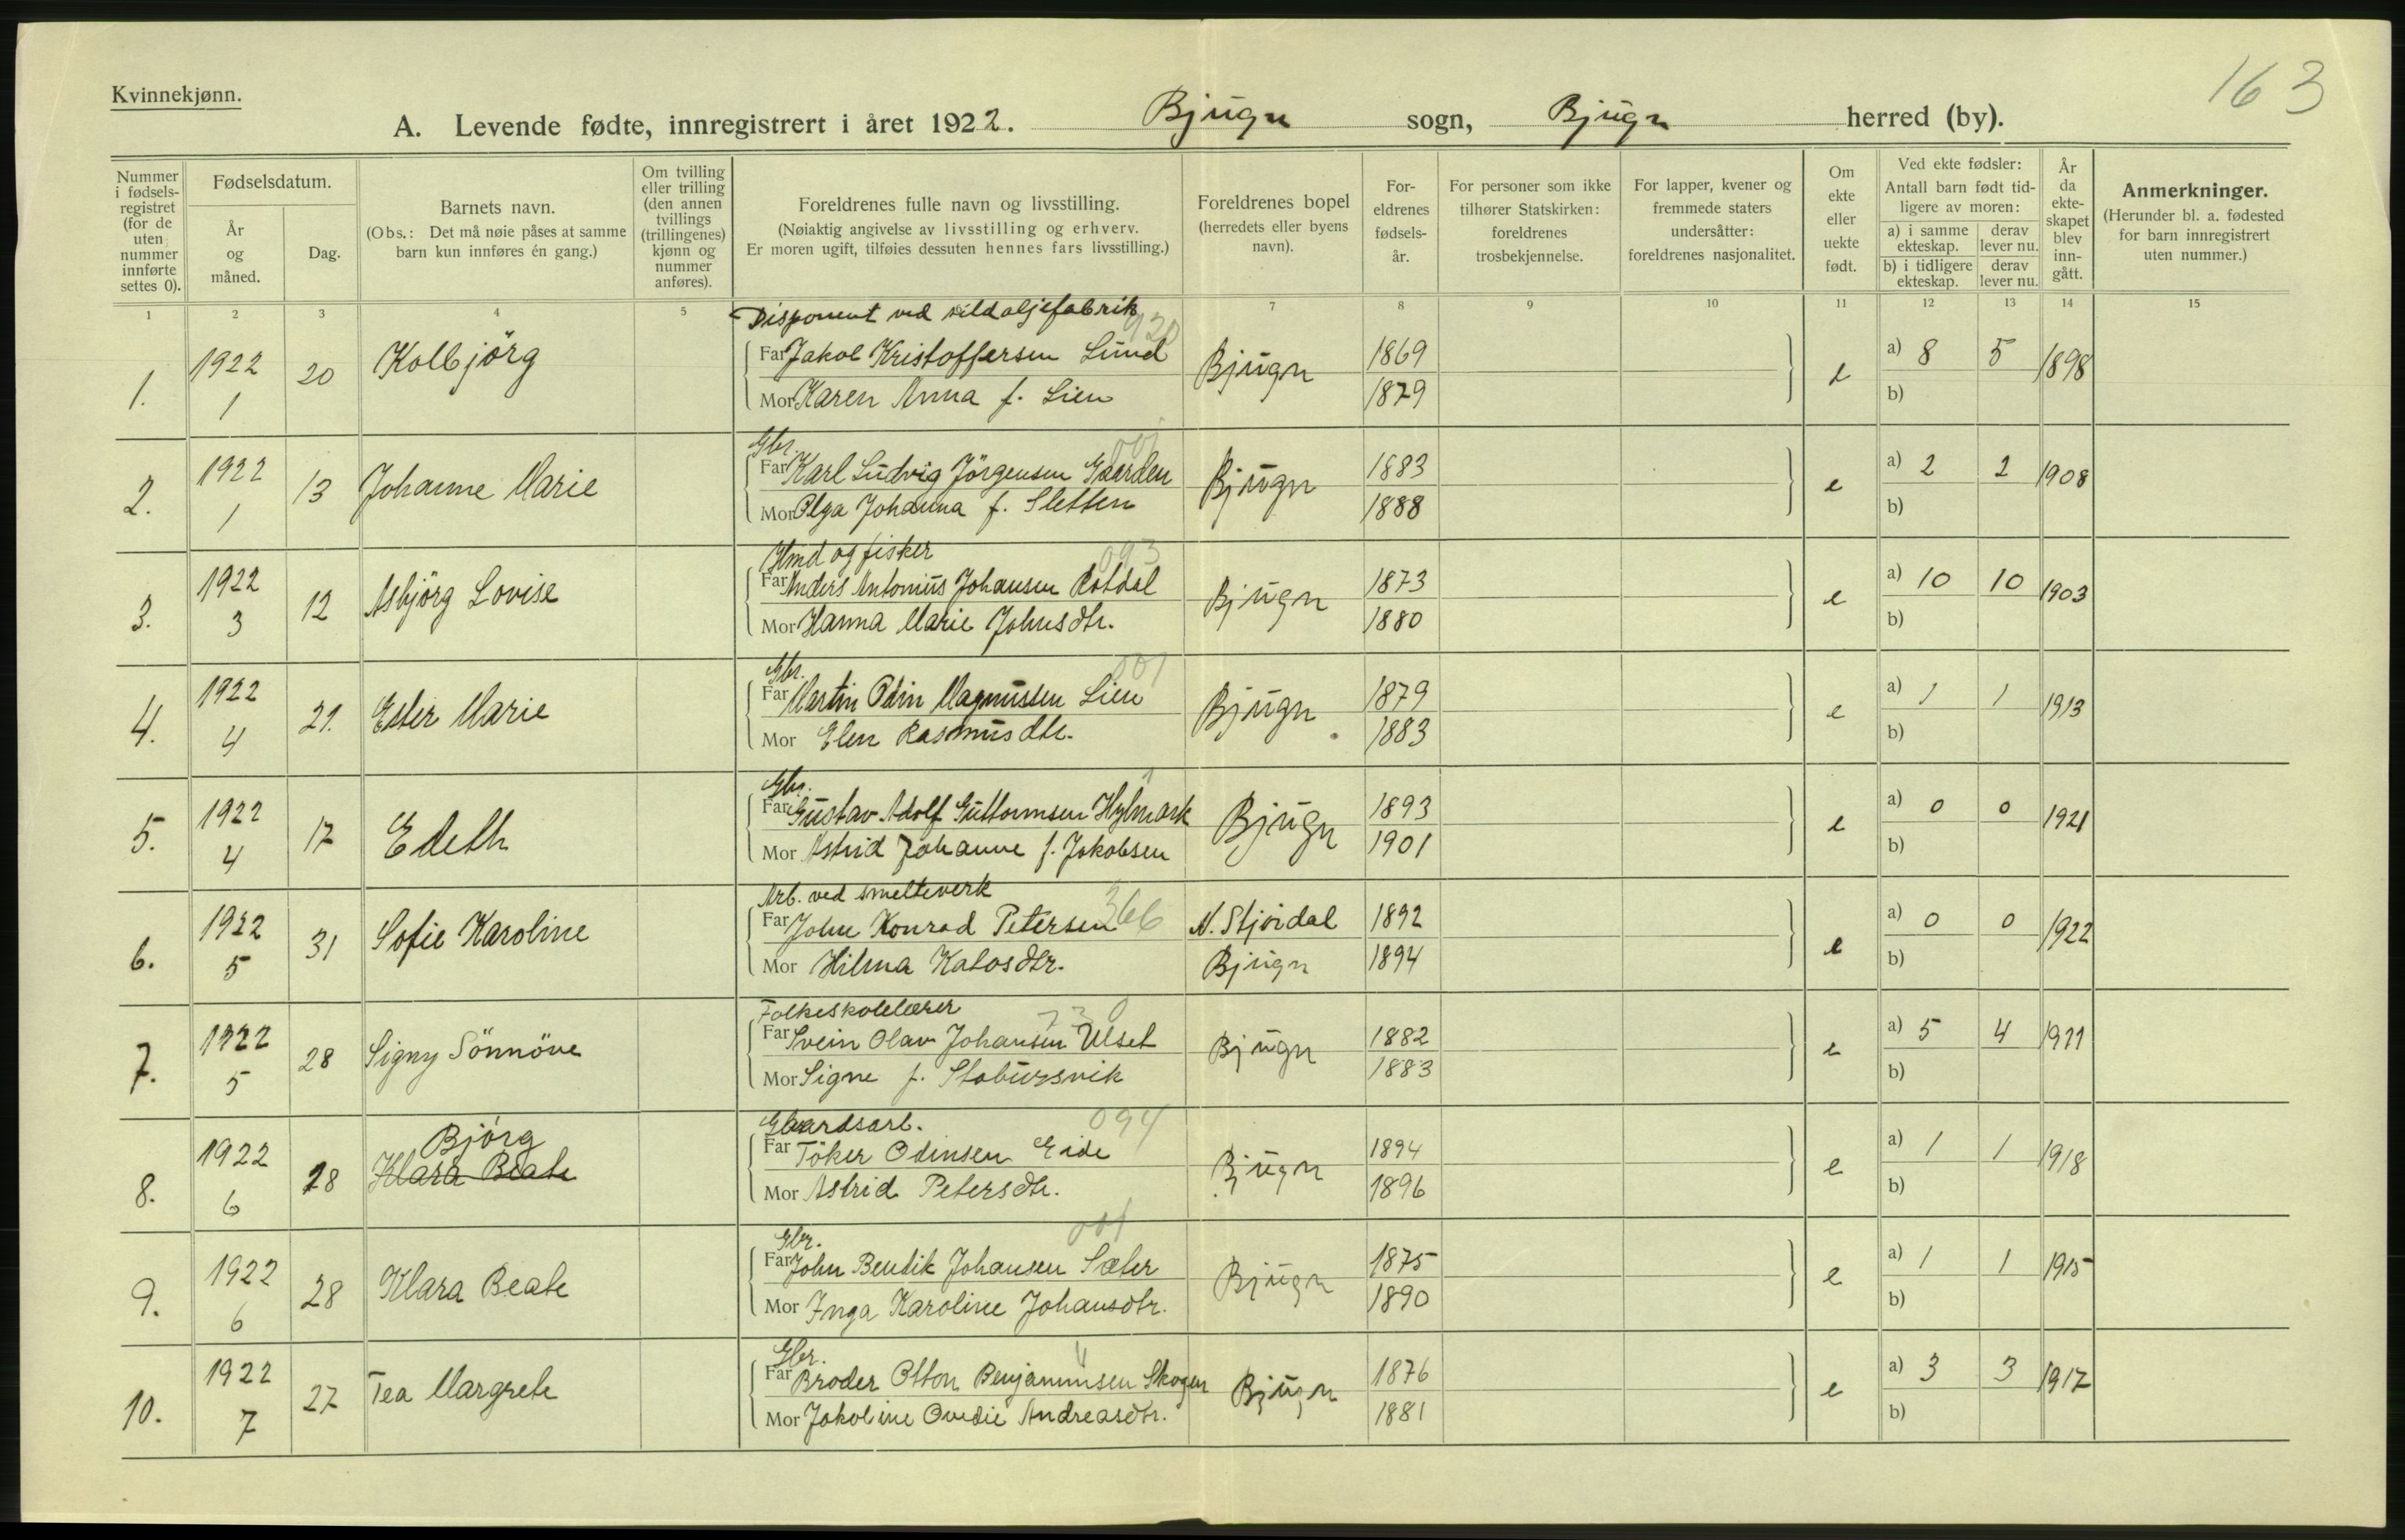 Kvinnekjønn.
163
A. Levende fødte, innregistrert i året 1922. Bjugn sogn, Bjugn herred (by).
Nummer i fødselsregistret (for de uten nummer innførte settes 0).
Fødselsdatum.
År og måned.
Dag.
Barnets navn.
(Obs.: Det må nøie påses at samme barn kun innføres én gang.)
Om tvilling eller trilling (den annen tvillings (trillingenes) kjønn og nummer anføres).
Foreldrenes fulle navn og livsstilling.
(Nøiaktig angivelse av livsstilling og erhverv.
Er moren ugift, tilføies dessuten hennes fars livsstilling.)
Foreldrenes bopel
(herredets eller byens navn).
Foreldrenes fødselsår.
For personer som ikke tilhører Statskirken: foreldrenes trosbekjennelse.
For lapper, kvener og fremmede staters undersåtter: foreldrenes nasjonalitet.
Om ekte eller uekte født.
Ved ekte fødsler:
Antall barn født tidligere av moren:
a) i samme ekteskap.
derav lever nu.
b) i tidligere ekteskap.
derav lever nu.
År da ekteskapet blev inngått.
Anmerkninger.
(Herunder bl. a. fødested for barn innregistrert uten nummer.)
1 2 3 4 5 7 8 9 10 11 12 13 14 15
Disponent ved sildoljefabrik 920
1. 1922 1 20 Kolbjörg Far Jakob Kristoffersen Lund Bjugn 1869 e a) 8 5 1898
Mor Karen Anna f. Lien 1879 b)
Gbr. 001
2. 1922 1 13 Johanne Marie Far Karl Ludvig Jörgensen Gaarden Bjugn 1883 e a) 2 2 1908
Mor Olga Johanna f. Sletten 1888 b)
Hmd og fisker 093
3. 1922 3 12 Asbjörg Lovise Far Anders Antonius Johansen Bjugn 1873 e a) 10 10 1903
Mor Hanna Marie Johnsdtr. 1880 b)
Gbr. 001
4. 1922 4 21. Ester Marie Far Martin Odin Magnussen Lien Bjugn 1879 e a) 1 1 1913
Mor Elen Rasmusdtr. 1883 b)
Gbr. 1
5. 1922 4 17 Edeth Far Gustav Adolf Guttormsen Hylmark Bjugn 1893 e a) 0 0 1921
Mor Astrid Johanne f. Jakobsen 1901 b)
Arb. ved smelteverk 366
6. 1922 5 31 Sofie Karoline Far John Konrad Petersen N. Stjördal 1892 e a) 0 0 1922
Mor Hilma Bjugn 1894 b)
Folkeskolelærer 730
7. 1922 5 28 Signy Sönnöve Far Svein Olav Johansen Ulset Bjugn 1882 e a) 5 4 1911
Mor Signe f. Stabursvik 1883 b)
Gaardsarb. 094
Björg
8. 1922 6 18 Klara Beate Far Töker Odinsen Eide Bjugn 1894 e a) 1 1 1918
Mor Astrid Petersdtr. 1896 b)
Gbr. 001
9. 1922 6 28 Klara Beate Far John Bendik Johansen Sæter Bjugn 1875 e a) 1 1 1915
Mor Inga Karoline Johansdtr. 1890 b)
Gbr.
10. 1922 7 27 Tea Margrete Far Broder Otton Benjaminsen Skogen Bjugn 1876 e a) 3 3 1917
Mor Jakobine Ovedie Andreasdtr. 1881 b)